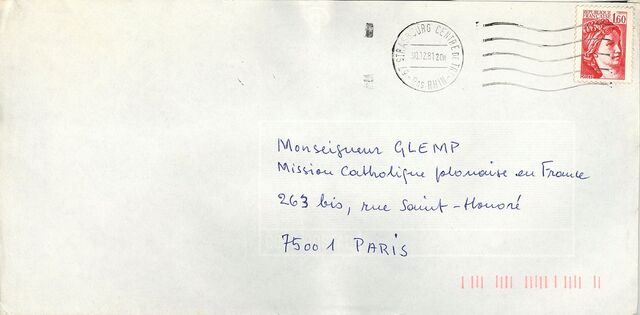 67 STRASBOURG CENTRE DE TRI
30.12.81 20H
Bas RHIN
REPUBLIQUE
FRANCAISE
1,60
Monseigneur GLEMP
Mission Catholique polonaise en France
263 bis, rue Saint-Honoré
75001 PARIS